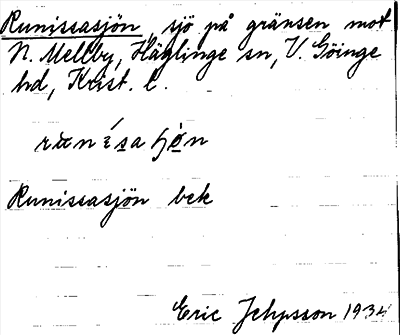 Runissasjön, sjö på gränsen mot
N. Mellby, Häglinge sn, V. Göinge
hd, Krist. l.
Runissasjön bek
Eric Jehpsson 1934